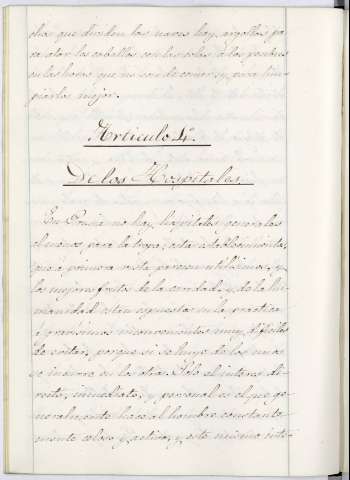 chos que dividen las naves hay, argollas pa
ra atar los caballos con las colas á los pesebres
en las horas que no son de comer, y para lim
piarlos mejor.
Articulo 4º
De los Hospitales.
En Prusia no hay hospitales generales
al menos para la tropa; estos establecimientos,
que á primera vista parecen utilísimos, y
los mejores frutos de la caridad, y de la hu
manidad estan expuestos en la practica
á gravísimos inconvenientes muy dificiles
de evitar, porque si se huye de los unos
se incurre en los otros. Solo el interes di
recto, inmediato, y personal es el que ge
neralmente hace al hombre constante
mente celoso y activo, y este mismo inte